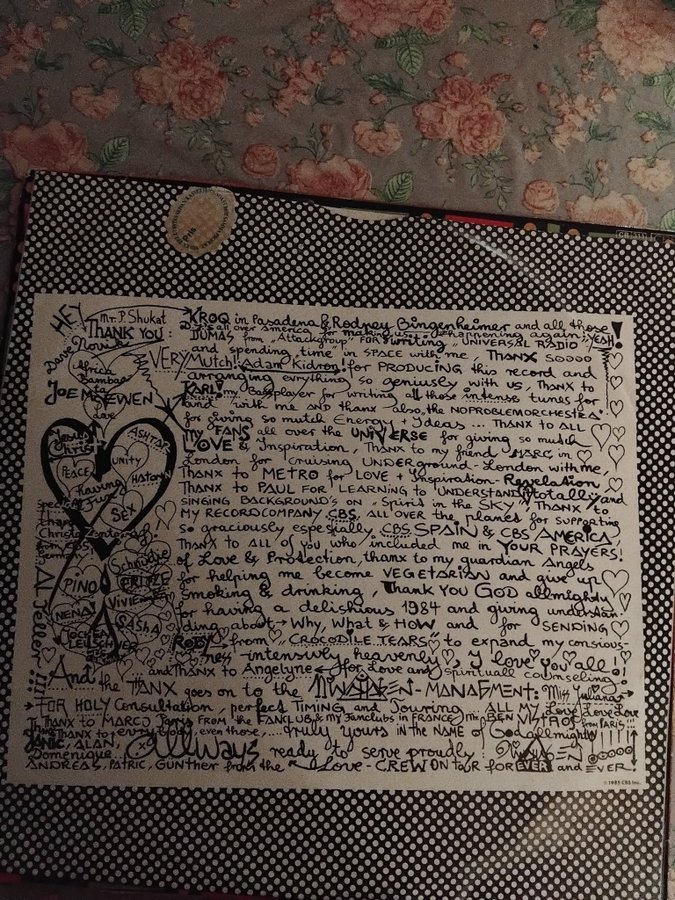 HEY
Mr. P Shukat
THANK YOU:
Dave Novik
Africa
Bambaata
JOE McEWEN
KROQ in Pasadena & Rodney Bingenheimer and all those
DJ's all over America for making us happening again, YEAH!
DUMAS from „Attackgroup" FOR writing „UNIVERSAL RADIO"
and spending time in SPACE with me, THANX soooo
VERY Mutch! Adam Kidron for PRODUCING this record and
arranging everything so geniusly with us, THANX to
KARL! my Bassplayer for writing all those intense tunes for
and with me AND thanx also the NOPROBLEMORCHESTRA
for giving so mutch Energy + Ideas ... THANX TO ALL
my FANS all over the UNIVERSE for giving so mutch
LOVE & Inspiration, THANX to my friend MARC in
London for cruising UNDERGROUND - London with me,
THANX to METRO for LOVE + Inspiration - Revelation
THANX TO PAUL FOR LEARNING to UNDERSTAND totally and
SINGING BACKGROUND'S on „Spirit in the SKY" THANX to
MY RECORDCOMPANY CBS, ALL OVER the planet for supporting
so graciously espesially CBS SPAIN & CBS AMERICA
THANX TO ALL OF YOU who included me in YOUR PRAYERS!
of Love & Protection, thanx to my guardian Angels
for helping me become VEGETARIAN and give up
smoking & drinking, THANK YOU GOD allmighty
for having a delishious 1984 and giving understan-
ding about → Why, What & HOW and for SENDING
ROBSY from „CROCODILE TEARS" to expand my consious-
ness - intensivly heavenly, I love you all!
and THANX to Angelyne ← for Love and spirituall counseling!
Jesus Christ
ASHTAR
PEACE
UNITY
having
Fun
HATOR
SEX
special
thanx
Christa
from CBS
Germany
PINO
Schmidie
FRITZE
VIVIENNE
NENA
SASHA
JOCHEN
LEUSCHNER
And the THANX goes on to the - MANAGMENT: Miss Juliana
→ FOR HOLY Consultation, perfect TIMING and Touring. ALL MY Love Love Love
Thanx to MARCO Paris FROM the FANCLUB & my fanclubs in FRANCE, from PARIS!!!
Thanx to everybody, even those, .... truly yours in the NAME of God allmighty
JANIC, ALAN,
Domenique,
Allways ready to serve proudly!
ANDREAS, PATRIC, GÜNTHER from the Love-CREW ON TOUR for EVER and EVER
© 1985 CBS Inc.